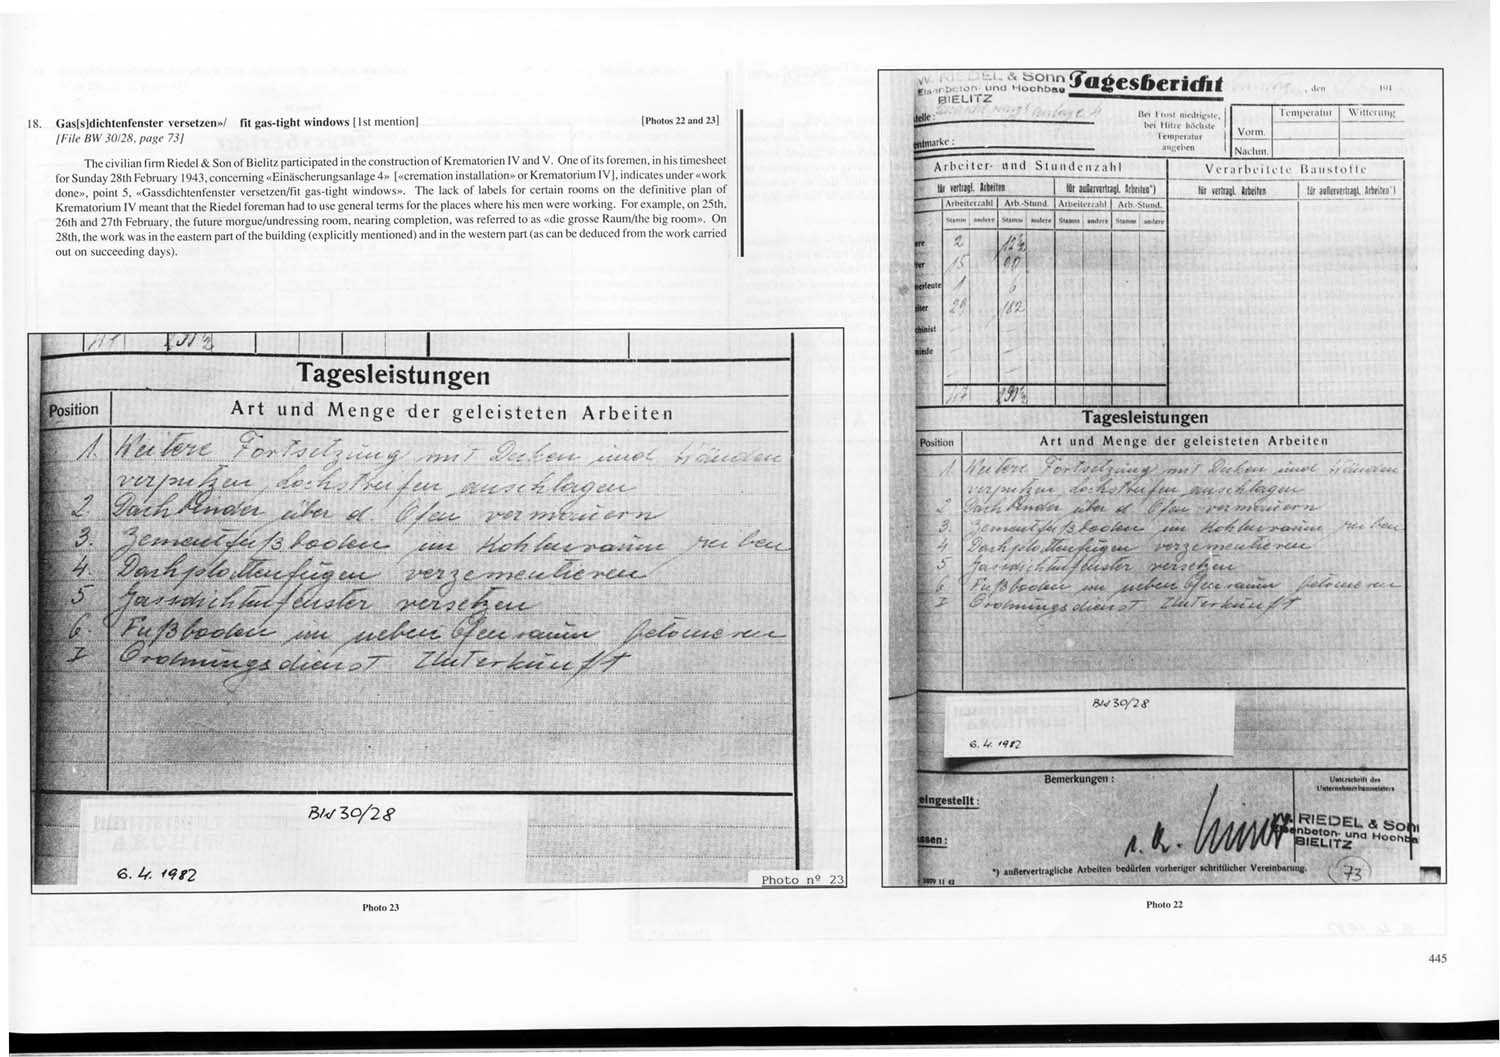 18. Gas[s]dichtenfenster versetzen»/ fit gas-tight windows [1st mention] [Photos 22 and 23]
[File BW 30/28, page 73]
The civilian firm Riedel & Son of Bielitz participated in the construction of Krematorien IV and V. One of its foremen, in his timesheet
for Sunday 28th February 1943, concerning «Einäscherungsanlage 4» [«cremation installation» or Krematorium IV], indicates under «work
done», point 5, «Gassdichtenfenster versetzen/fit gas-tight windows». The lack of labels for certain rooms on the definitive plan of
Krematorium IV meant that the Riedel foreman had to use general terms for the places where his men were working. For example, on 25th,
26th and 27th February, the future morgue/undressing room, nearing completion, was referred to as «die grosse Raum/the big room». On
28th, the work was in the eastern part of the building (explicitly mentioned) and in the western part (as can be deduced from the work carried
out on succeeding days).
Tagesleistungen
Position Art und Menge der geleisteten Arbeiten
1. Weitere Fortsetzung mit Decken und Wänden
verputzen, Lochstreifen anschlagen
2. Dachbinder über d. Ofen vermauern
3. Zementfußboden im Kohlenraum reiben
4. Dachplattenfugen verzementieren
5 Gassdichtenfenster versetzen
6. Fußboden im neben Ofenraum betonieren
7 Ordnungsdienst Unterkunft
BW 30/28
6. 4. 1982
Photo nº 23
Photo 23
W. RIEDEL & Sohn
Eisenbeton- und Hochbau
BIELITZ
Tagesbericht
, den 191
stelle:
Bei Frost niedrigste,
bei Hitze höchste
Temperatur
angeben
Temperatur Witterung
Vorm.
Nachm.
entmarke :
Arbeiter- und Stundenzahl Verarbeitete Baustoffe
für vertragl. Arbeiten für außervertragl. Arbeiten*) für vertragl. Arbeiten für außervertragl. Arbeiten*)
Arbeiterzahl Arb.-Stund. Arbeiterzahl Arb.-Stund.
Stamm andere Stamm andere Stamm andere Stamm andere
2 12½
15 90
erleute 1 6
eiter 29 182
chinist
iede
47 291½
Tagesleistungen
Position Art und Menge der geleisteten Arbeiten
1. Weitere Fortsetzung mit Decken und Wänden
verputzen, Lochstreifen anschlagen
2 Dachbinder über d. Ofen vermauern
3. Zementfußboden im Kohlenraum reiben
4 Dachplattenfugen verzementieren
5 Gassdichtenfenster versetzen
6. Fußboden im neben Ofenraum betonieren
7 Ordnungsdienst Unterkunft
BW 30/28
6. 4. 1982
Bemerkungen :
Unterschrift des
Unternehmerbaumeisters
eingestellt :
ssen :
W. RIEDEL & Sohn
Eisenbeton- und Hochba
BIELITZ
*) außervertragliche Arbeiten bedürfen vorheriger schriftlicher Vereinbarung.
73
Photo 22
445